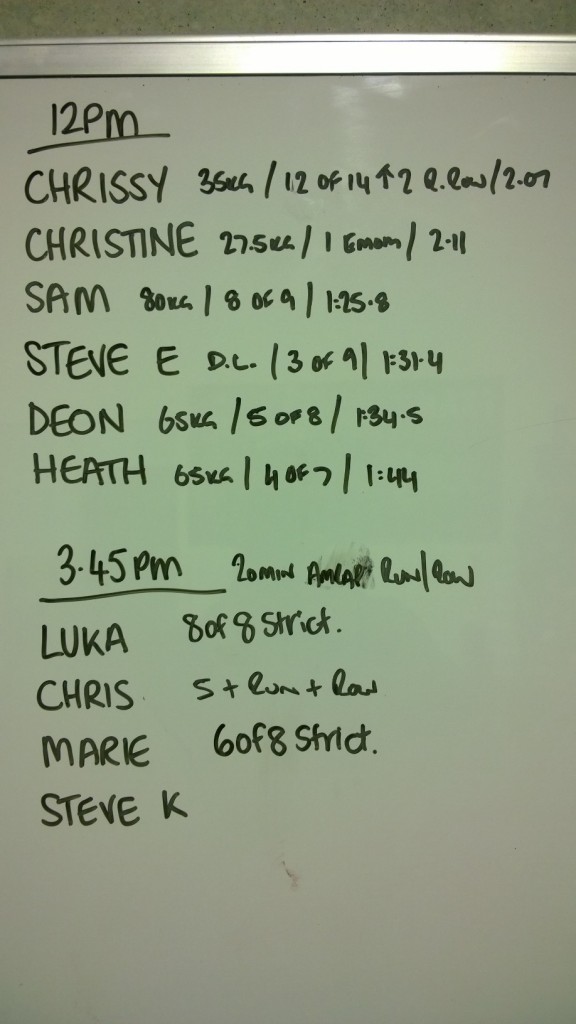 12Pm
CHRISSY 35KG / 12 OF 14 ↑ 2 R.Row / 2.07
CHRISTINE 27.5KG / 1 Emom / 2.11
SAM 80KG / 8 OF 9 / 1:25.8
STEVE E D.L. / 3 OF 9 / 1:31.4
DEON 65KG / 5 OF 8 / 1:34.5
HEATH 65KG / 4 OF 7 / 1:44
3.45pm 20min AMRAP Run/Row
LUKA 8 of 8 Strict.
CHRIS 5 + Run + Row
MARIE 6 of 8 Strict.
STEVE K